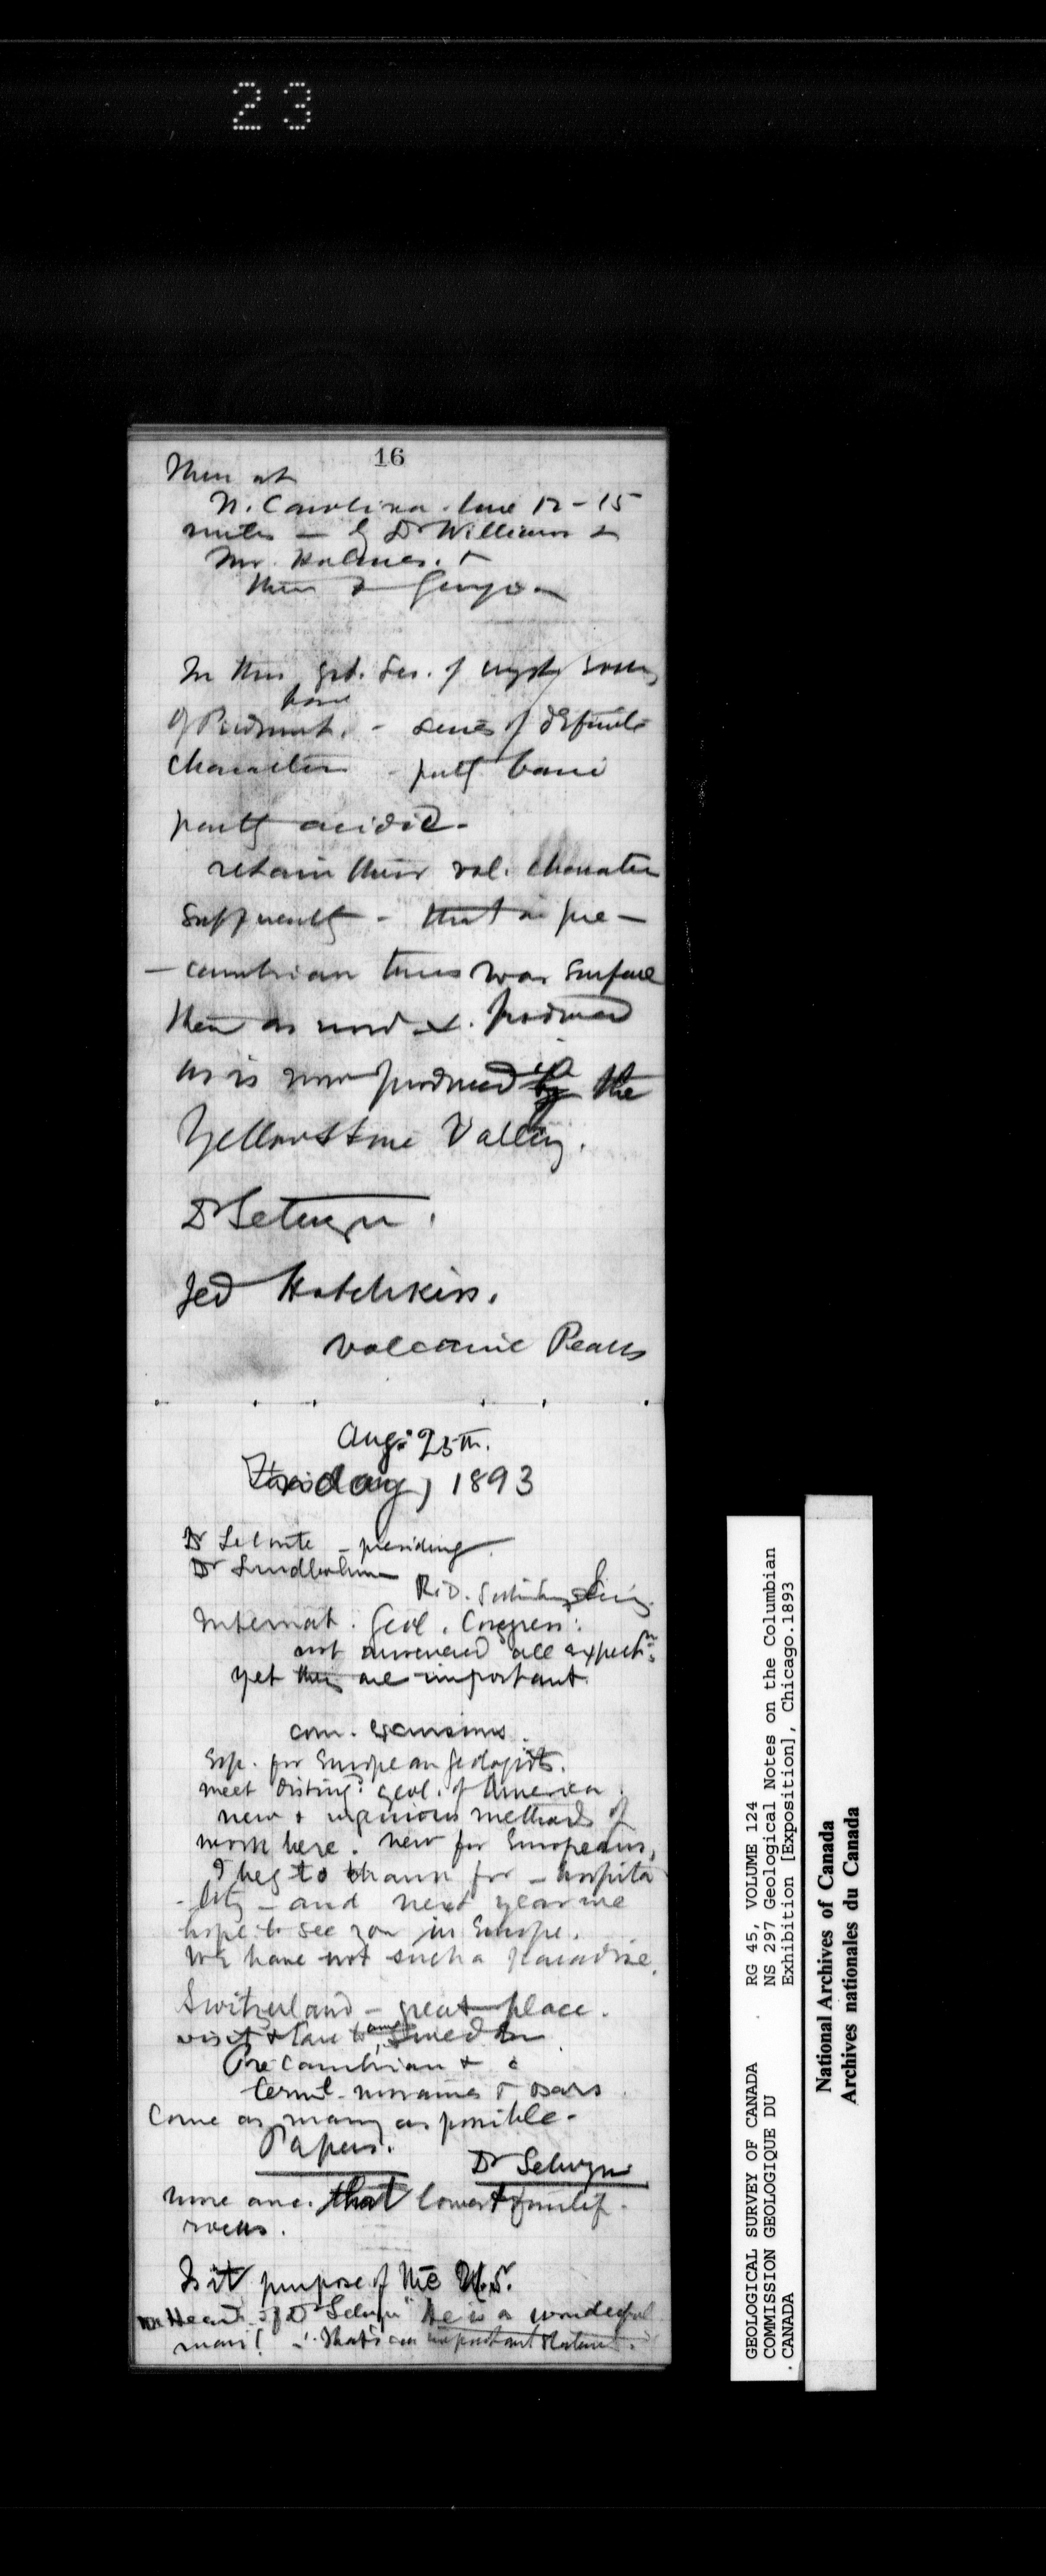 23
16
Then at
N. Carolina. line 12-15
miles - by Dr Williams &
Mr. Holmes. &
then
In this grt. Ser. of cryst. rocks
have
of Piedmont. - series of definite
character - partly basic
partly acidic -
retain their vol. character
sufficiently - that in pre-
- cambrian times was surface
then as now produced
as is now produced in the
Yellowstone Valley.
Dr Selwyn.
Jed Hotchkiss.
Volcanic Peaks
Aug. 25th.
Friday, 1893
Dr LeConte - presiding.
Dr Lundbohm
R.D.
Internat. Geol. Congress:
not answered all expectns.
yet they are important.
com. excursions.
Esp. for European geologists.
meet disting. geol. of America.
new & ingenious methods of
work here. New for Europeans.
I beg to thank for - hospita
- lity - and next year we
hope to see you in Europe.
We have not such a paradise.
Switzerland - great place.
visit & Sweden
Pre Cambrian & c
term. moraines & osars.
Come as many as possible -
Papers.
Dr Selwyn
more anc. that lowest
rocks.
Is it purpose of the U.S.
Heard of Dr Selwyn "he is a wonderful
man! That's an important statement.
GEOLOGICAL SURVEY OF CANADA
COMMISSION GEOLOGIQUE DU
CANADA
RG 45, VOLUME 124
NS 297 Geological Notes on the Columbian
Exhibition [Exposition], Chicago.1893
National Archives of Canada
Archives nationales du Canada